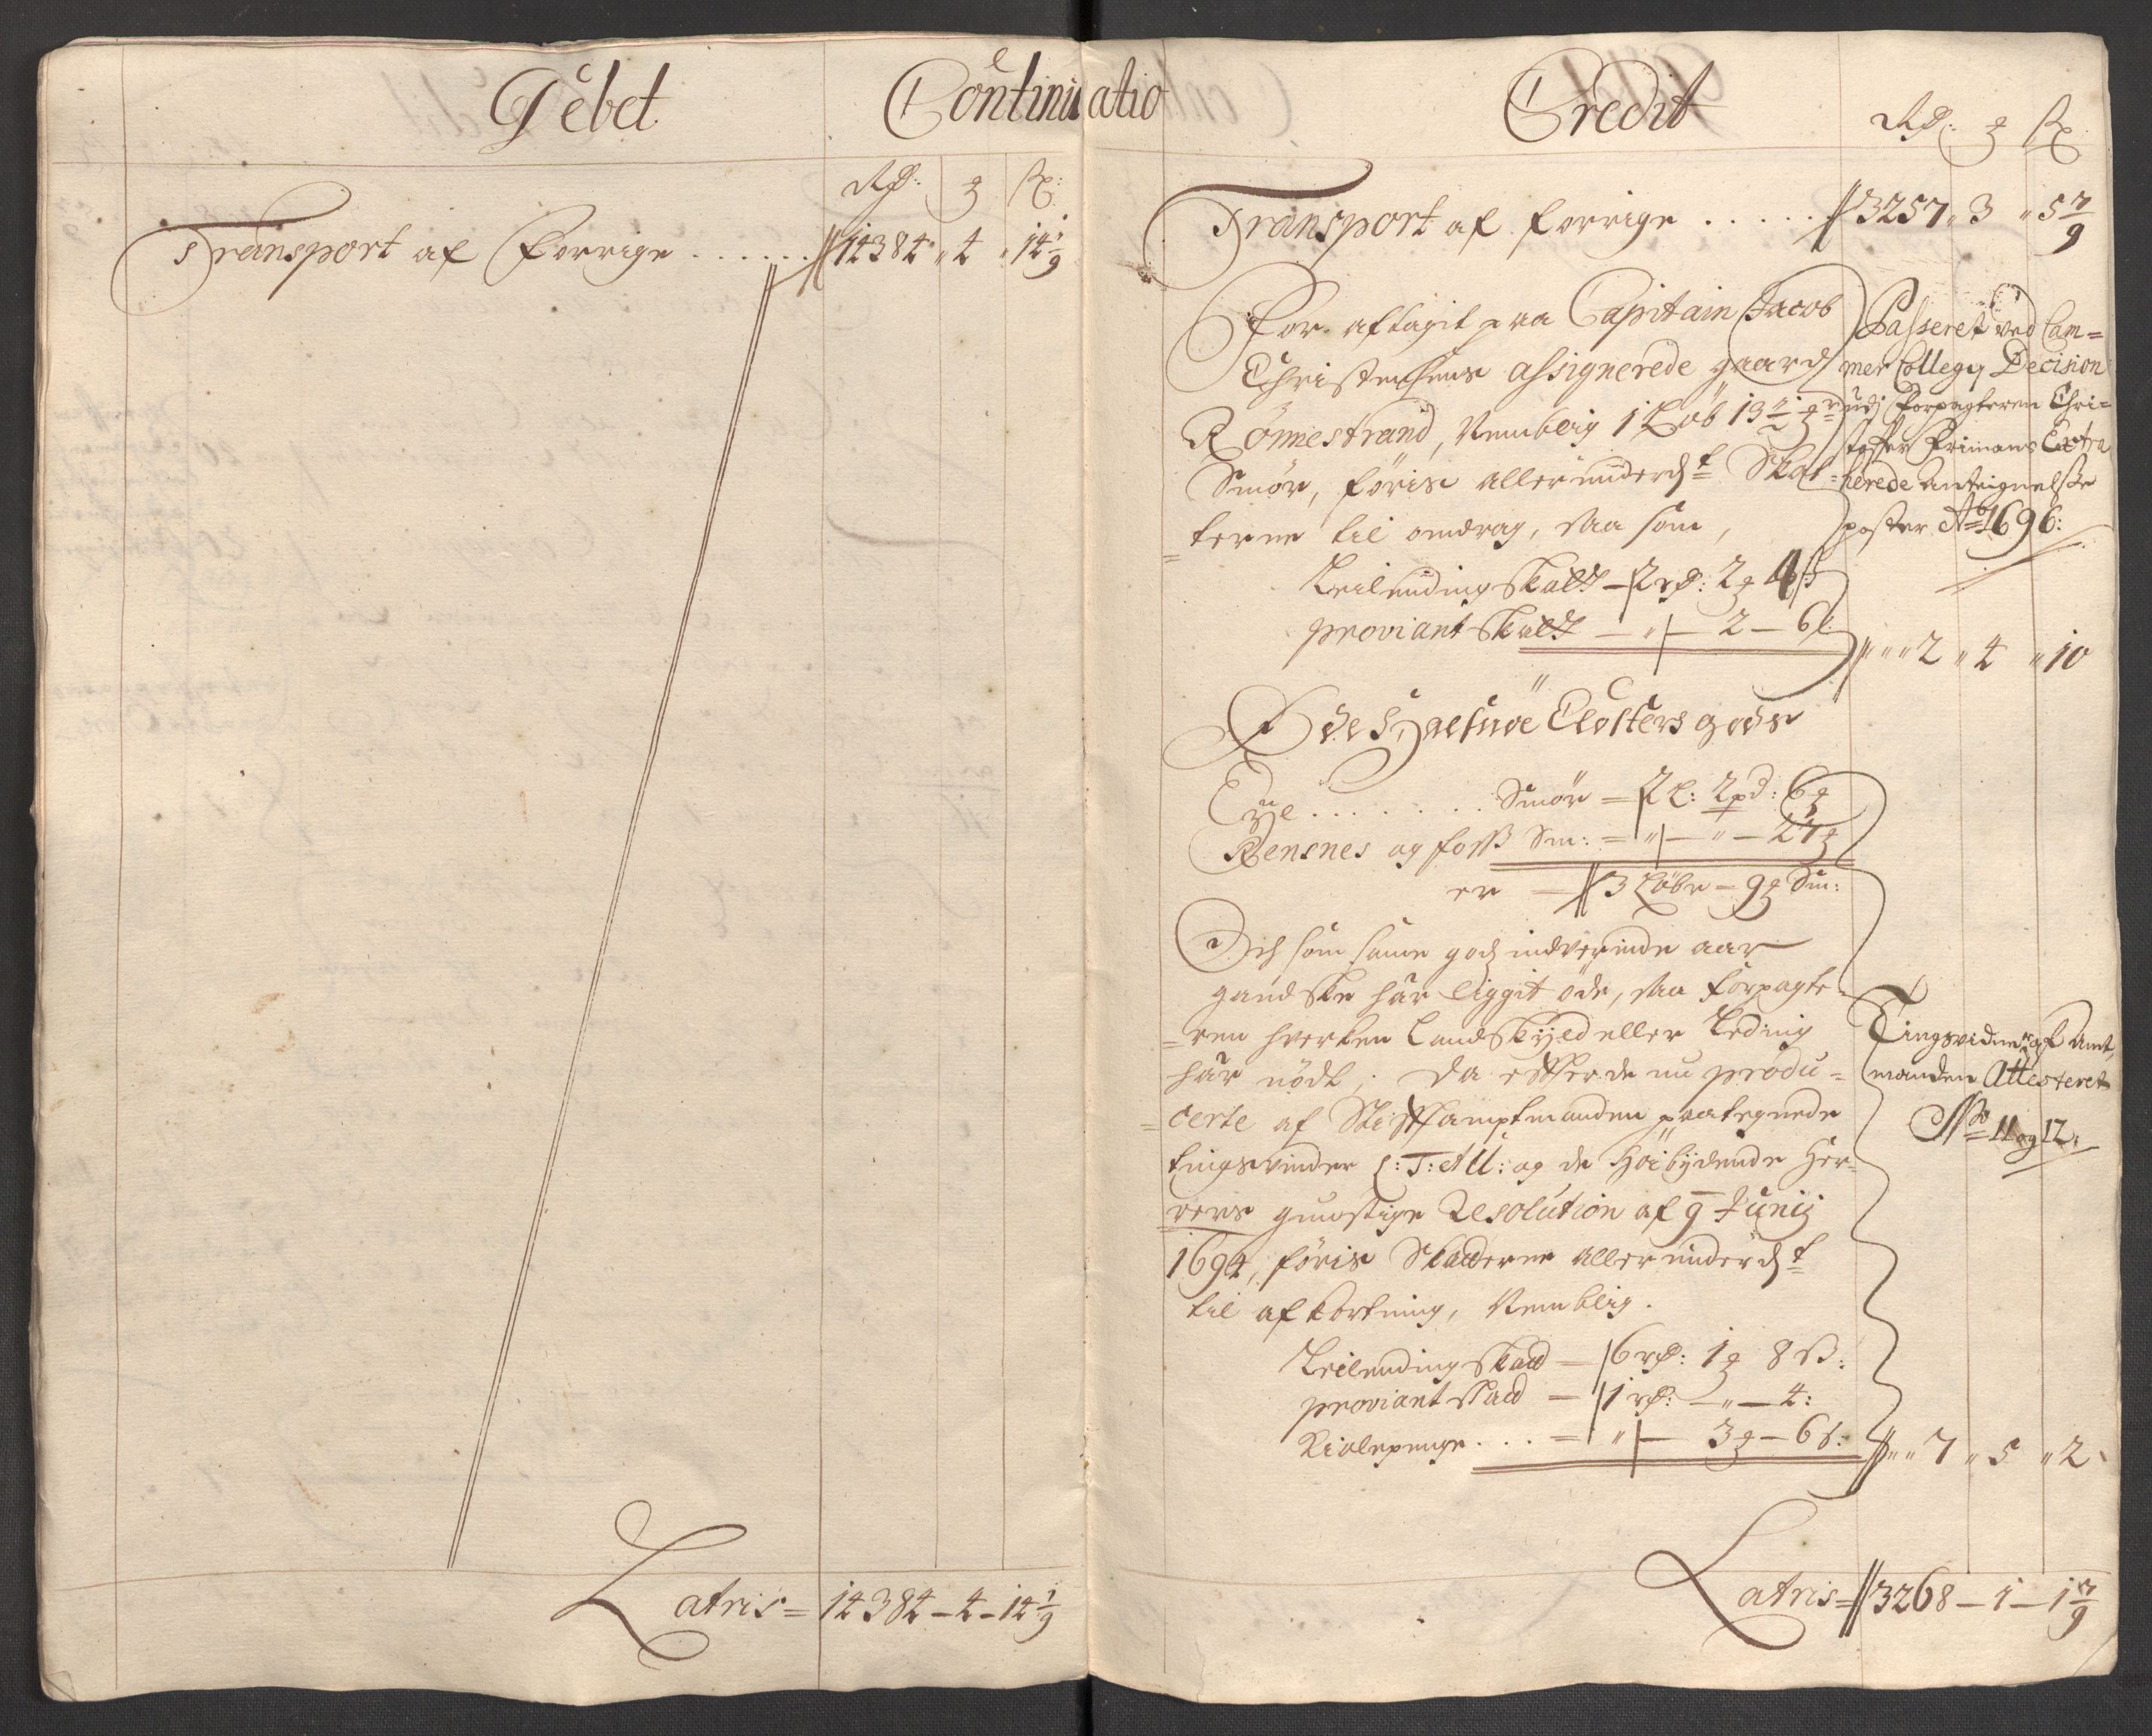 Debet Continuatio Credit
Rd: ȝ ß:
Transport af Forrige . . . . . . 14384 „ 4 „ 14 1/9
Latris = 14384 – 4 – 14 1/9
Rd: ȝ ß
Transport af forrige . . . . . 3257 „ 3 „ 5 7/9
For aftagit paa Capitain Jacob
Christensens assignerede gaard
Rönnestrand, Nemblig 1 Löb 13 1/2 ȝr
Smör, föris allerunderdt Skat-
terne til omdrag, saa som,
Leilending Skatt – 2 rd: 2 ȝ 4 ß
proviant Skatt – „ – 2 – 6 ß
„ „ 2 „ 4 „ 10
Passeret ved Cam=
mer Collegij Decision
udj Forpagteren Chri=
stoffer Frimans Extra
herede Anteignelsse
poster Ao 1696:
Ode Halsnøe Closters gods
Eye . . . . . . . Smör = 2 L: 2 pd: 6 ȝ
Rensnes og foss Sm: = „ – „ – 27 ȝ
er – 3 Löbe – 9 ȝ Sm:
Och som samme godz indverende aar
gandske har liggit öde, saa forpagte-
=ren hverken Landskyld eller Leding
har nödt, da efter de nu produ=
=certe af Stiftsamptmanden paategnede
tingsvinder L: T: et U: og de Höibydende Her-
rers gunstige Resolution af 9 Junij
1694, föris Skatterne allerunderdt
til afkortning, Nemblig.
Leilending Skatt – 6 rd: 1 ȝ 8 ß:
proviant Skatt = 1 rd: – „ – 4:
Kiolepenge . . . = „ – 3 ȝ – 6 ß:
„ „ 7 „ 5 „ 2
Tingsvidner af Amt-
manden Attesteret
No 11 og 12:
Latris = 3268 – 1 – 1 7/9